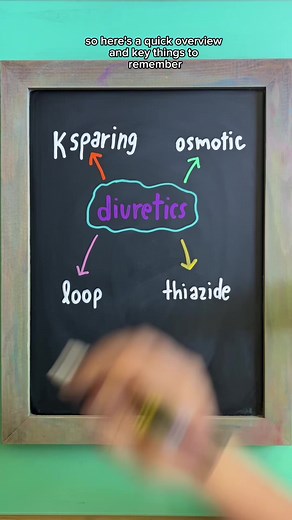 so here's a quick overview
and key things to
remember
K sparing
osmotic
diuretics
loop
thiazide